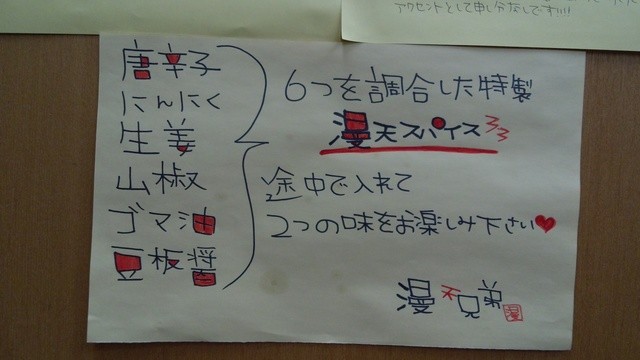 アクセントとして申し分なしです!!!!
唐辛子
にんにく
生姜
山椒
ゴマ油
豆板醤
6つを調合した特製
漫天スパイス
途中で入れて
2つの味をお楽しみ下さい♥
漫 天 兄弟
漫